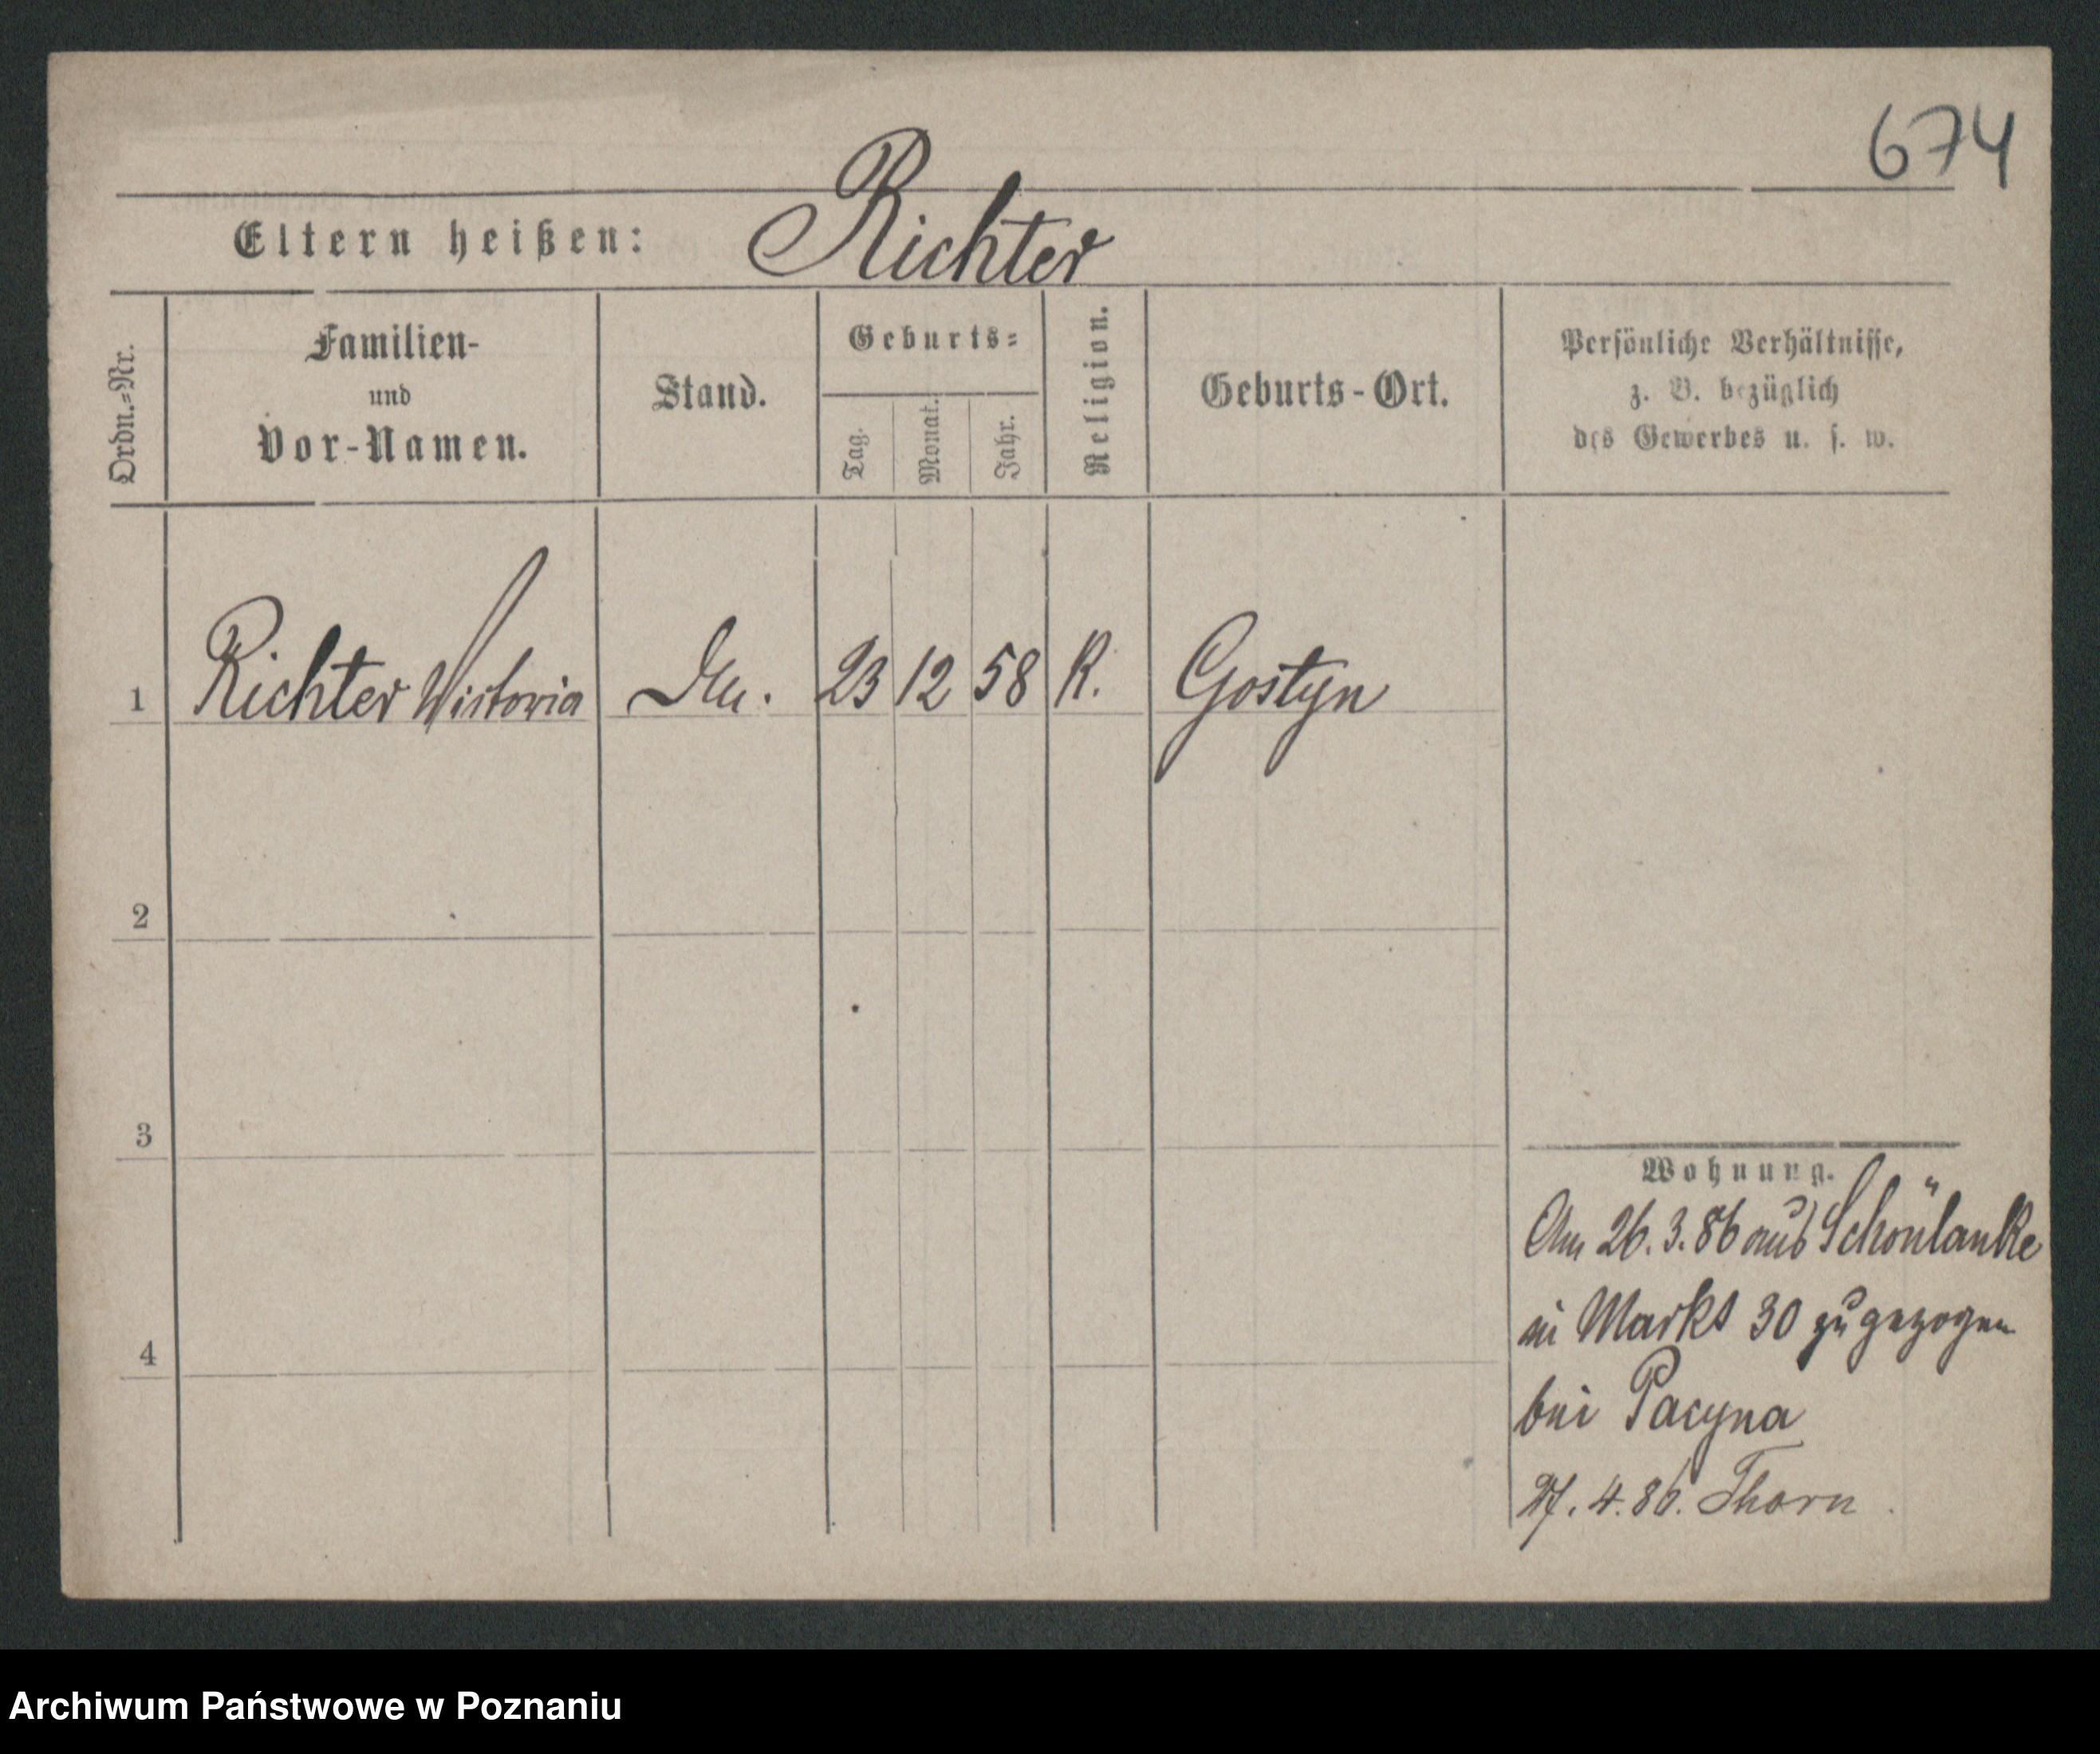 674
Eltern heißen: Richter
Ordn.=Nr.
Familien-
und
Vor-Namen.
Stand.
Geburts=
Tag.
Monat.
Jahr.
Religion.
Geburts-Ort.
Persönliche Verhältnisse,
z. B. bezüglich
des Gewerbes u. s. w.
1 Richter Wistoria 23 12 58 K. Gostyn
2
3
4
Wohnung.
Am 26.3.86 aus Schönlanke
in Markt 30 zugezogen
bei Pacyna
27.4.86. Thorn.
Archiwum Państwowe w Poznaniu